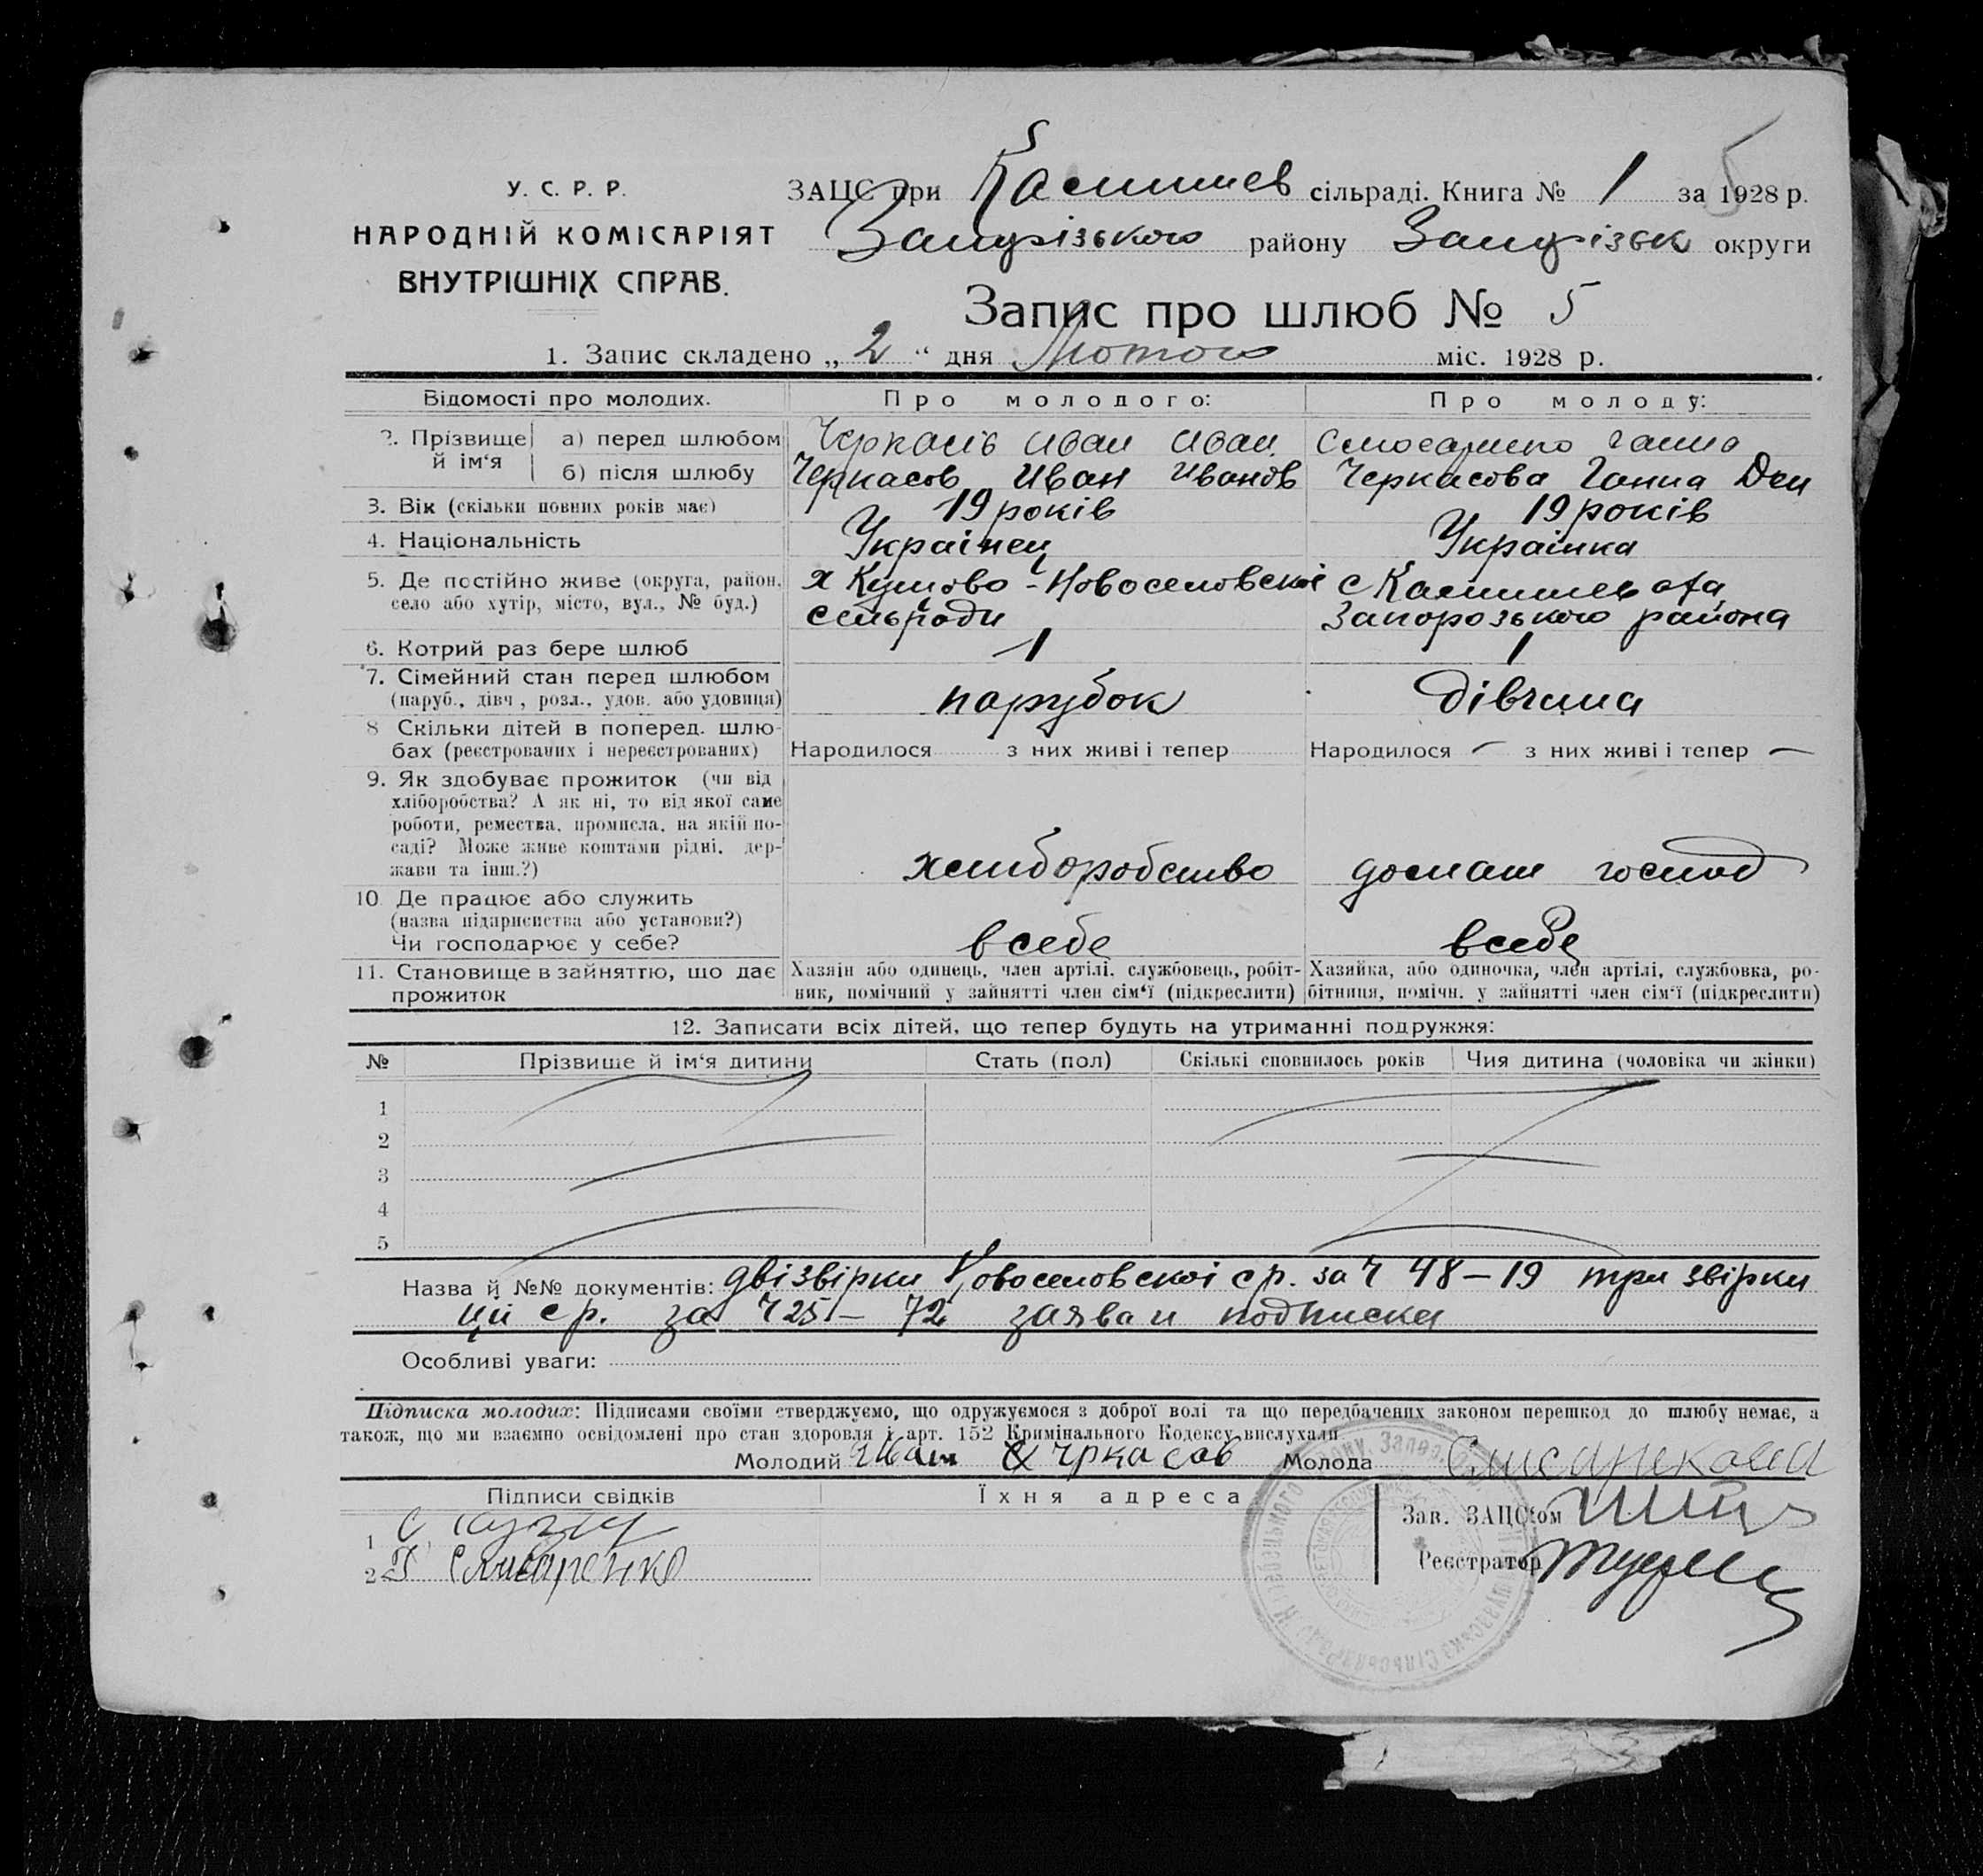 5
У. С. Р. Р.
НАРОДНІЙ КОМІСАРІЯТ
ВНУТРІШНІХ СПРАВ.
ЗАЦС при сільраді. Книга № 1 за 1928 р.
району округи
Запис про шлюб № 5
1. Запис складено „ 2 “ дня Лютого міс. 1928 р.
Відомості про молодих. Про молодого: Про молоду:
2. Прізвище й ім‘я
а) перед шлюбом Черкасів Иван Иван. Ганна
б) після шлюбу Черкасов Иван Иванов Черкасова Ганна Дем
3. Вік (скільки повних років має) 19 років 19 років
4. Національність Украінец Украінка
5. Де постійно живе (округа, район, х Новоселовскоі с
село або хутір, місто, вул., № буд.) сельради Запорозького района
6. Котрий раз бере шлюб 1 1
7. Сімейний стан перед шлюбом
(паруб., дівч., розл., удов. або удовиця) парубок дівчина
8 Скільки дітей в поперед. шлю-
бах (реєстрованих і нереєстрованих) Народилося з них живі і тепер Народилося — з них живі і тепер —
9. Як здобуває прожиток (чи від
хліборобства? А як ні, то від якої саме
роботи, ремества, промисла, на якій по-
саді? Може живе коштами рідні, дер-
жави та інш.?) хлиборобство домаш господ
10. Де працює або служить
(назва підприємства або установи?)
Чи господарює у себе? в себе в себе
11. Становище в зайняттю, що дає Хазяїн або одинець, член артілі, службовець, робіт- Хазяйка, або одиночка, член артілі, службовка, ро-
прожиток ник, помічний у зайнятті член сім‘ї (підкреслити) бітниця, помічн. у зайнятті член сім‘ї (підкреслити)
12. Записати всіх дітей, що тепер будуть на утриманні подружжя:
№ Прізвище й ім‘я дитини Стать (пол) Скількі сповнилось років Чия дитина (чоловіка чи жінки)
1
2
3
4
5
Назва й №№ документів: дві звірки Новоселовскоі ср. за ч 48—19 три звірки
ції ср. за ч 25— 72 заява и подписка
Особливі уваги:
Підписка молодих: Підписами своїми стверджуємо, що одружуємося з доброї волі та що передбачених законом перешкод до шлюбу немає, а
також, що ми взаємно освідомлені про стан здоровля і арт. 152 Кримінального Кодексу вислухали
Молодий Иван Черкасов Молода
Підписи свідків Їхня адреса
Зав. ЗАЦС‘ом
1
Реєстратор
2 Слисаренко